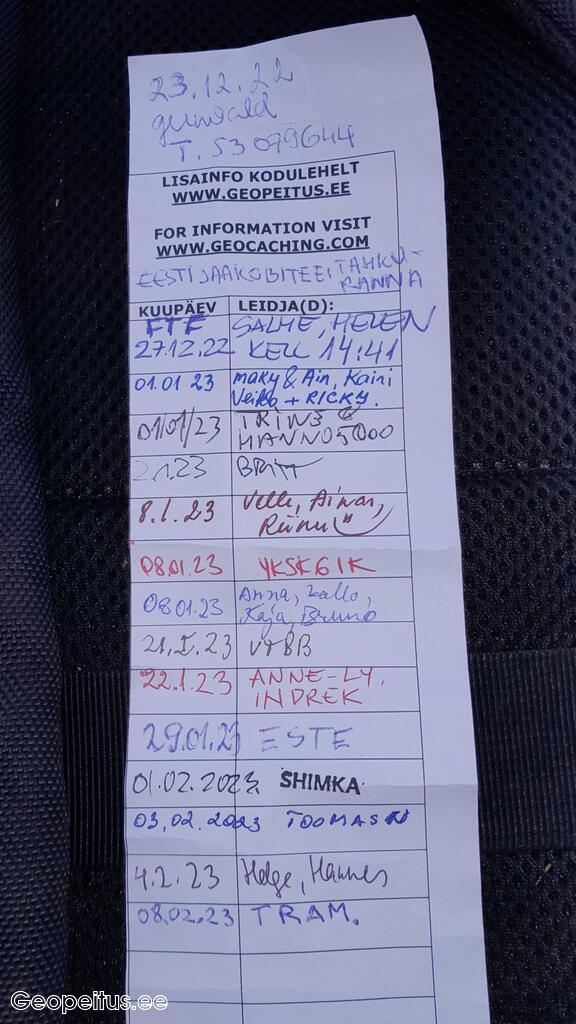 23.12.22
gunvald
T. 53 079644
LISAINFO KODULEHELT
WWW.GEOPEITUS.EE
FOR INFORMATION VISIT
WWW.GEOCACHING.COM
EESTI JAAKOBITEE: TAHKU-
RANNA
KUUPÄEV LEIDJA(D):
FTF SALME, HELEN
27.12.22 KELL 14:41
01.01 23 maky & Ain, Kaini
Veiko + RICKY.
01/01/23 TRINS &
HANNO5000
2.1.23 BRITT
8.1.23 Velle, Aivar,
Riinu
08.01.23 YKSK6IK
08.01.23 Anna, Kallo,
Kaja, Bruno
21.I.23
22.1.23 ANNE-LY,
INDREK
29.01.23 ESTE
01.02.2023. SHIMKA
03.02.2023 TOOMASN
4.2.23 Helge, Hannes
08.02.23 TRAM.
Geopeitus.ee